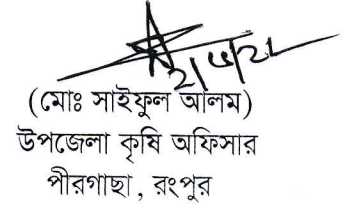 2/5/21
(মোঃ সাইফুল আলম)
উপজেলা কৃষি অফিসার
পীরগাছা, রংপুর